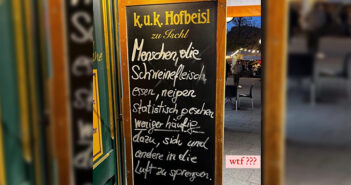 k.u.k. Hofbeisl
zu Ischl
Menschen, die
Schweinefleisch
essen, neigen
statistisch gesehen
weniger häufig
dazu, sich und
andere in die
Luft zu sprengen.
wtf ???